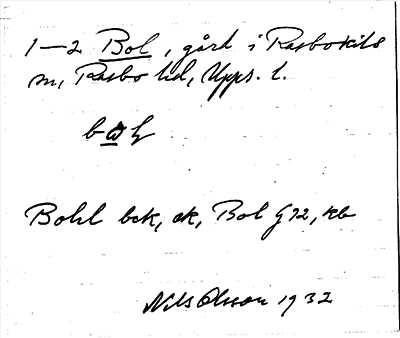 1–2 Bol, gård i Rasbokils
sn, Rasbo hd, Upps. l.
Bohl bck, ek, Bol G 72, kb
Nils Olsson 1932